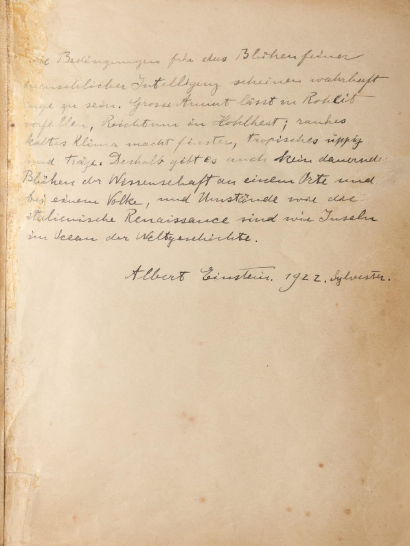 Die Bedingungen für das Blühen feiner
menschlicher Intelligenz scheinen wahrhaft
enge zu sein. Grosse Armut lässt in Rohheit
verfallen, Reichtum in Hohlheit; rauhes
kaltes Klima macht finster, tropisches üppig
und träge. Deshalb gibt es auch kein dauernd
Blühen der Wissenschaft an einem Orte und
bei einem Volke, und Umstände wie die
italienische Renaissance sind wie Inseln
im Ocean der Weltgeschichte.
Albert Einstein. 1922. Sylvester.